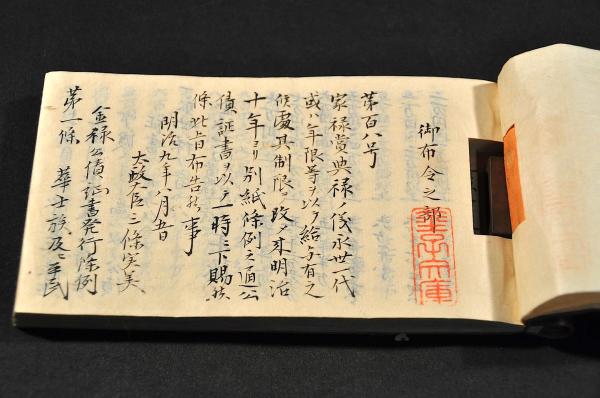 御布令之部
第百八号
家禄賞典禄ノ儀永世一代
或ハ年限等ヲ以テ給与有之
候處其制限ヲ改メ来明治
十年ヨリ別紙條例之通公
債証書ヲ以テ一時ニ下賜候
條此旨布告候事
明治九年八月五日
太政大臣三條実美
金禄公債証書発行條例
第一條 華士族及ヒ平民